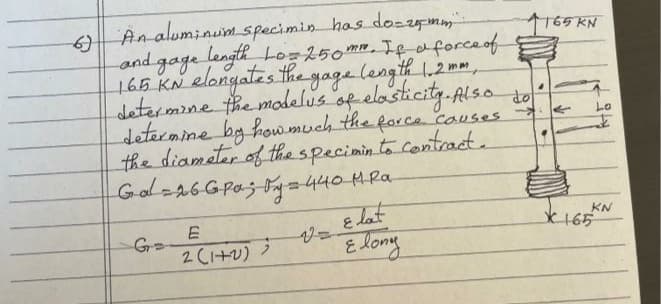 6) An aluminum specimin has do=25mm
and gage length Lo=250mm. If a force of
165 KN elongates the gage length 1.2mm,
determine the modelus of elasticity. Also
determine by how much the force causes
the diameter of the specimin to contract.
Gal=26GPa; σy=440 MPa
G= E / 2(1+υ) ; υ= ε lat / ε long
165 KN
do
Lo
165 KN